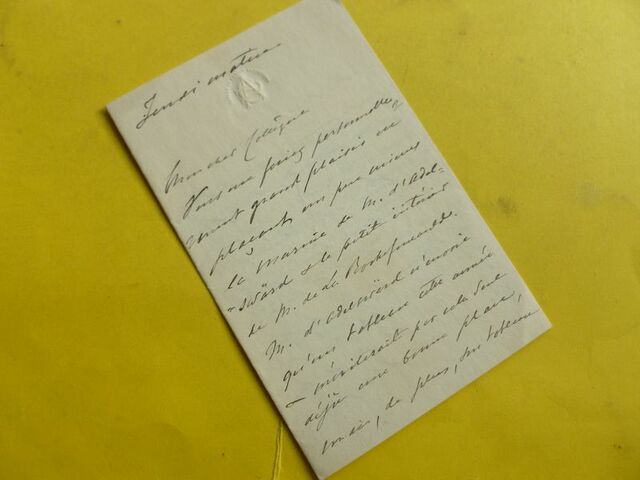 Jeudi matin
A
Mon cher Collègue
Vous me feriez personnelle-
ment grand plaisir en
plaçant un peu mieux
la marine de M. d'Adel-
swärd & le petit intérieur
de M. de La Rochefoucauld.
M. d'Adelswärd n'envoie
qu'un tableau cette année
mériterait par cela seul
déjà une bonne place,
mais, de plus, son tableau